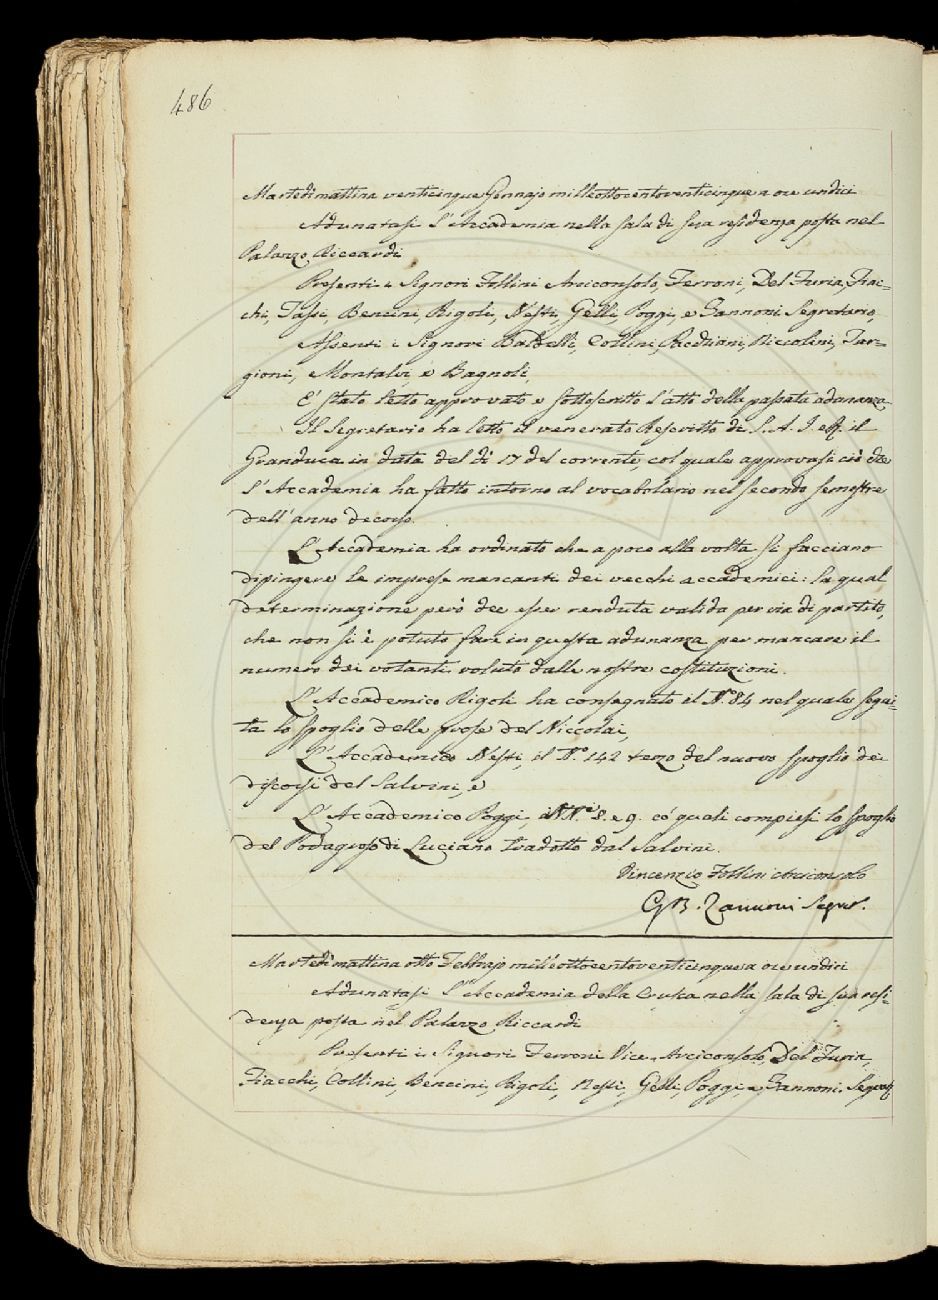 486
Martedì mattina venticinque Gennajo milleottocentoventicinque a ore undici
Adunatasi l'Accademia nella sala di sua residenza posta nel
Palazzo Riccardi
Presenti i Signori Follini Arciconsolo, Ferroni, Del Furia, Fiac=
chi, Tassi, Bencini, Rigoli, Nesti, Gelli, Poggi, e Zannoni Segretario,
Assenti i Signori Baldelli, Collini, Niccolini, Tar=
gioni, Montalvi, e Bagnoli,
E' stato letto approvato e sottoscritto l'atto della passata adunanza
Il Segretario ha letto il venerato Rescritto di S. A. I. e R. il
Granduca in data del dì 17 del corrente, col quale approvasi ciò che
l'Accademia ha fatto intorno al vocabolario nel secondo semestre
dell'anno decorso.
L'Accademia ha ordinato che a poco alla volta si facciano
dipingere le imprese mancanti dei vecchi accademici: la qual
determinazione però dee esser renduta valida per via di partito,
che non si è potuto fare in questa adunanza per mancare il
numero dei votanti voluto dalle nostre costituzioni.
L'Accademico Rigoli ha consegnato il N.º 84 nel quale segui=
ta lo spoglio delle prose del Niccolai,
L'Accademico Nesti, il N.º 142 terzo del nuovo spoglio dei
discorsi del Salvini, e
L'Accademico Poggi, i NN.i 8. e 9. co' quali compiesi lo spoglio
del Podagroso di Luciano tradotto dal Salvini.
Vincenzio Follini Arciconsolo
G B. Zannoni Segret.
Martedì mattina otto Febbrajo milleottocentoventicinque a ore undici
Adunatasi l'Accademia della Crusca nella sala di sua resi=
denza posta nel Palazzo Riccardi
Presenti i Signori Ferroni Vice-Arciconsolo, Del Furia,
Fiacchi, Collini, Bencini, Rigoli, Nesti, Gelli, Poggi, e Zannoni. Segret.